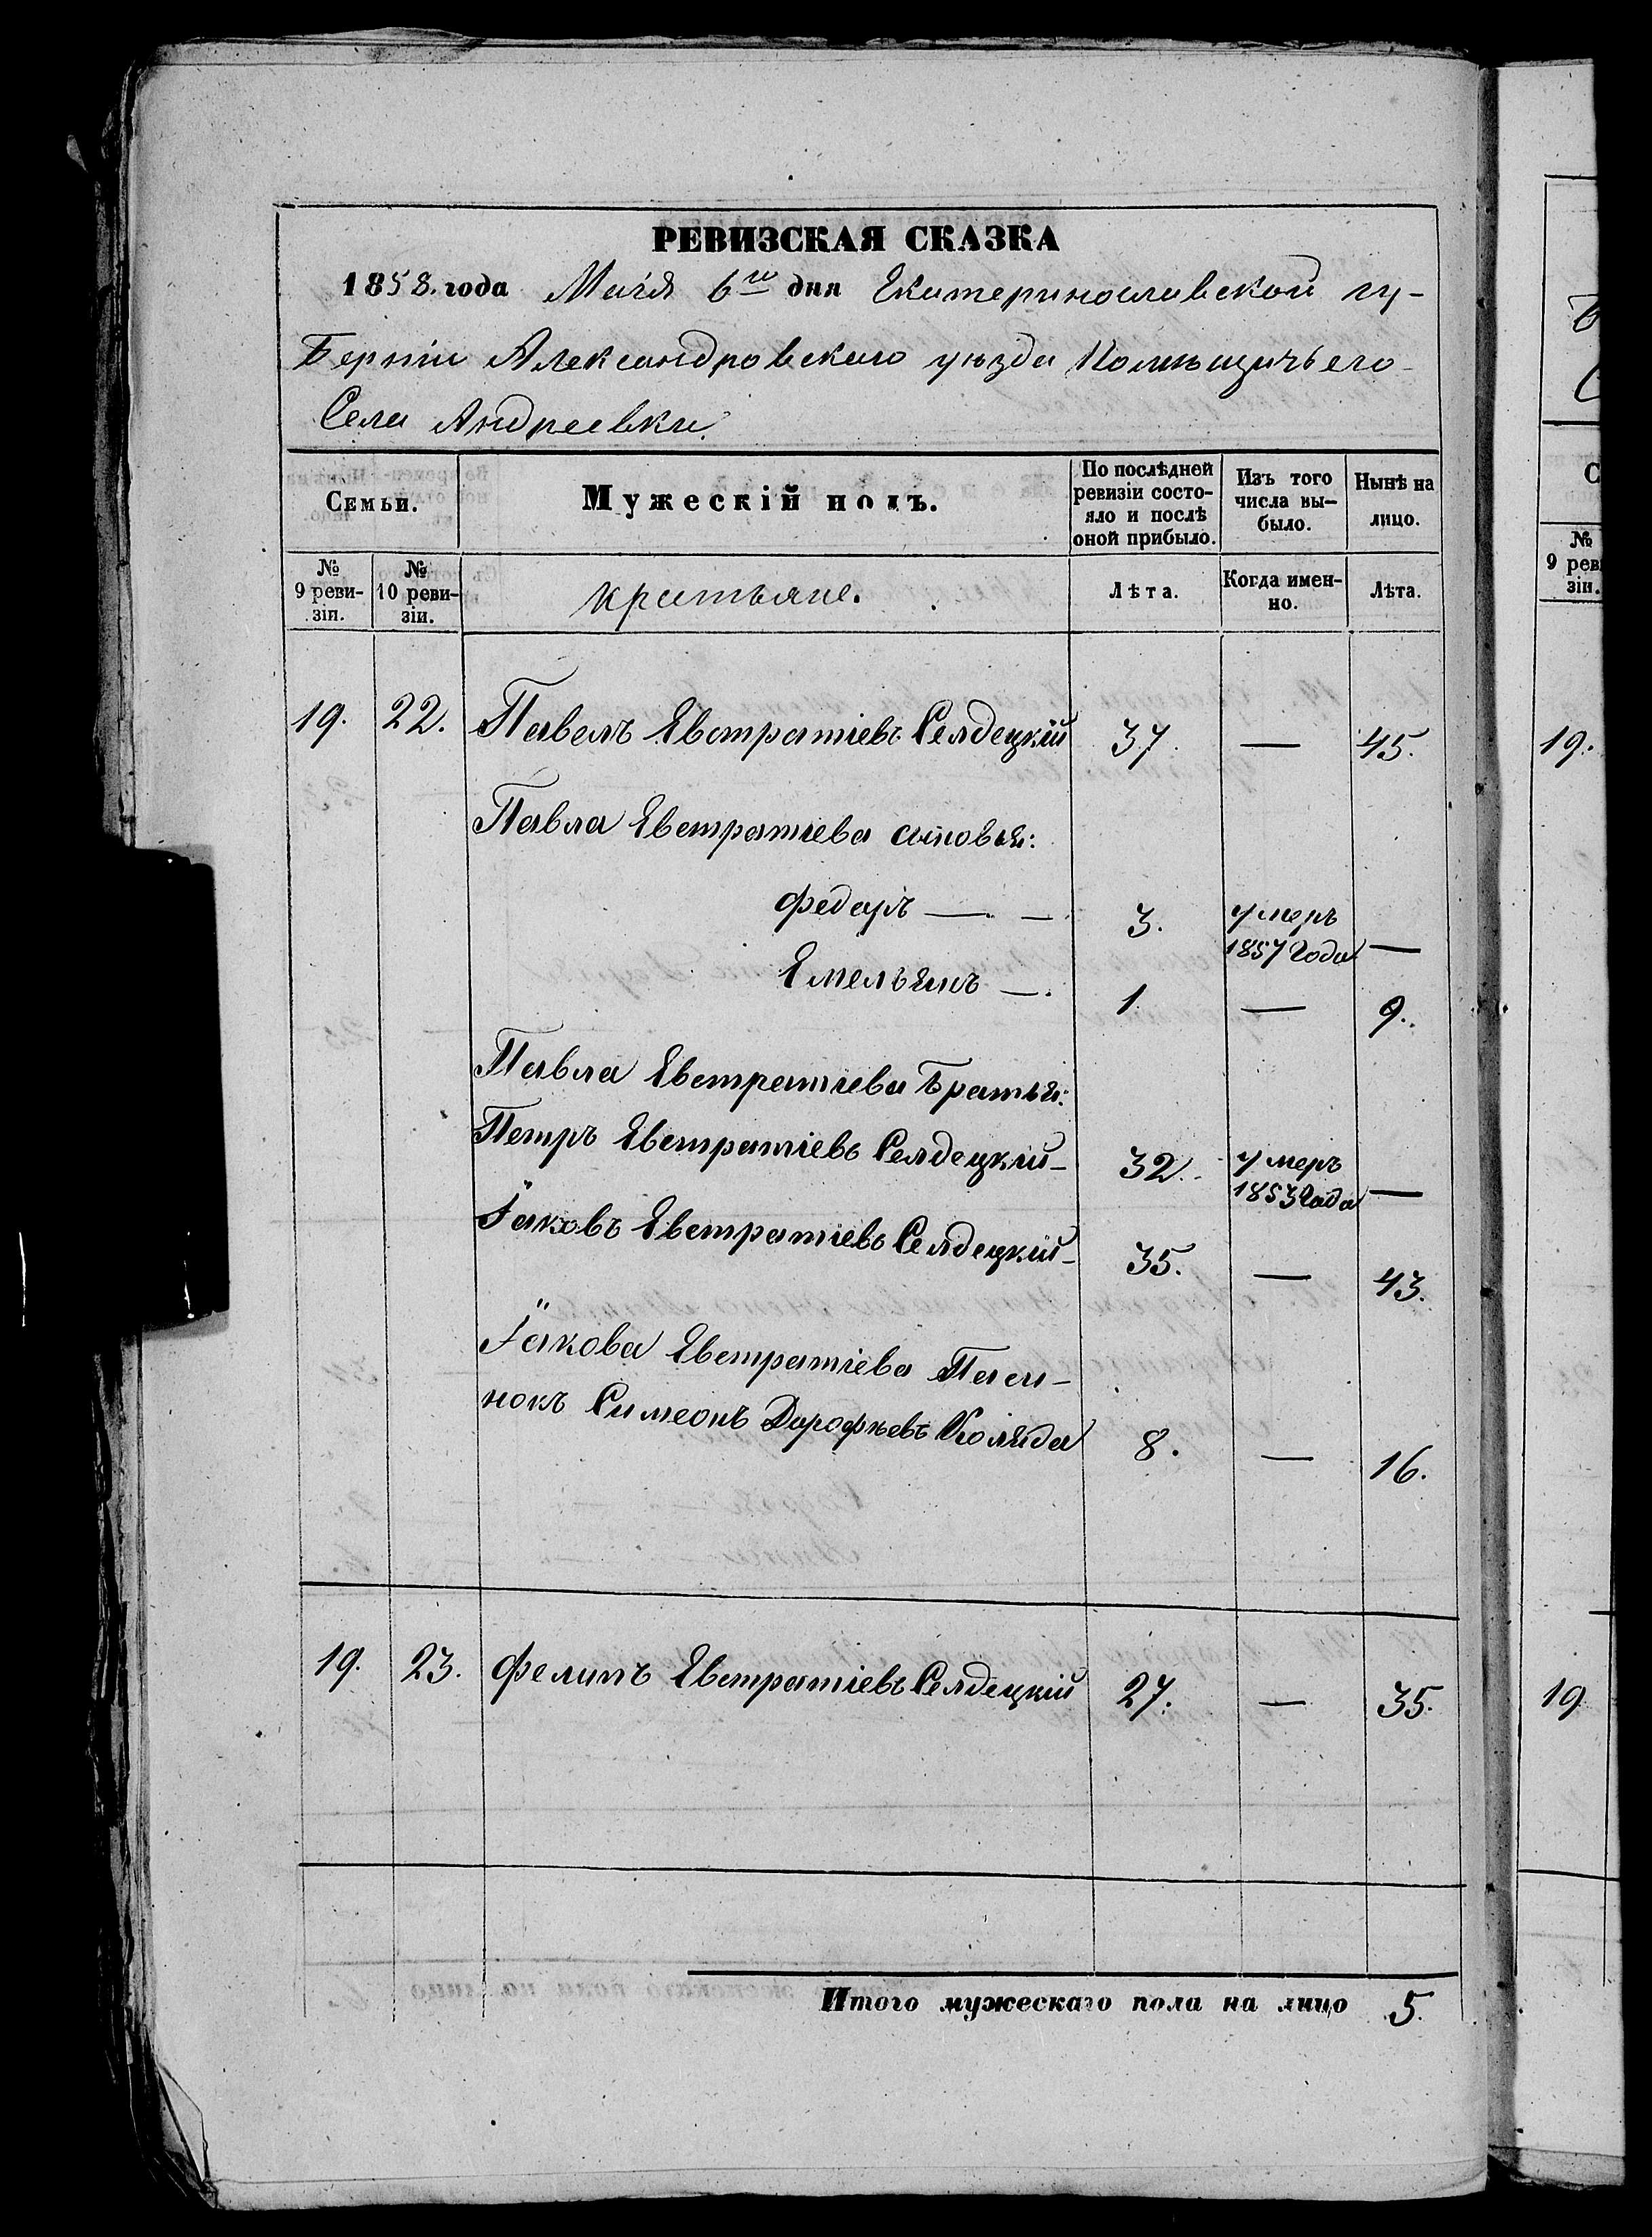 РЕВИЗСКАЯ СКАЗКА
1858. года Маія 6го дня Екатеринославской гу-
Берніи Александровскаго уѣзда Помѣщичьего
Села Андреевки.
Семьи.
Мужескій полъ.
По послѣдней ревизіи состо-
яло и послѣ оной прибыло.
Изъ того числа вы-
было.
Нынѣ на лицо.
№ 9 реви-
зіи.
№ 10 реви-
зіи.
крстьяне.
Лѣта.
Когда имен-
но.
Лѣта.
19. 22. Павелъ Евстратіевъ Селдецкій 37. — 45.
Павла Евстратіева сыновья:
Федоръ — — 3. умеръ
1857 Года —
Емельянъ — 1. — 9.
Павла Евстратіева Братья:
Петръ Евстратіевъ Селдецкій - 32. умеръ
1853 Года —
Іаковъ Евстратіевъ Селдецкій - 35. — 43.
Іакова Евстратіева Пасы-
нокъ Симеонъ Дорофѣевъ Коляда 8. — 16.
19. 23. Фелипъ Евстратіевъ Селдецкій 27. — 35.
Итого мужескаго пола на лицо 5.
№
9 рев
зіи.
19.
19